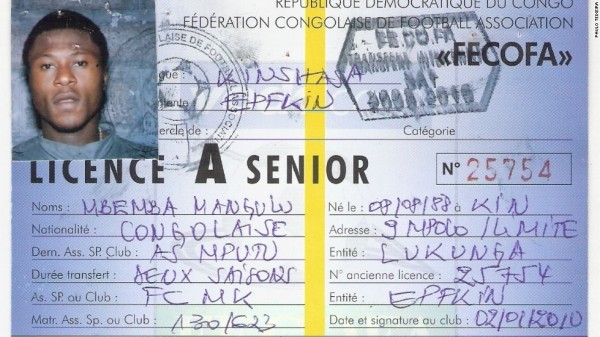 RÉPUBLIQUE DÉMOCRATIQUE DU CONGO
FÉDÉRATION CONGOLAISE DE FOOTBALL ASSOCIATION
«FECOFA»
KINSHASA
EPFKIN
Cercle de :
Catégorie
LICENCE A SENIOR
N° 25754
Noms : MBEMBA MANGULU
Né le : 08/08/88 à KIN
Nationalité : CONGOLAISE
Adresse : 9 MPOLO/LIMITE
Dern. Ass. SP. Club : AS MPUTU
Entité : LUKUNGA
Durée transfert : DEUX SAISONS
N° ancienne licence : 25754
As. SP ou Club : FC MK
Entité : EPFKIN
Matr. Ass. Sp. ou Club : 130/622
Date et signature au club : 02/01/2010